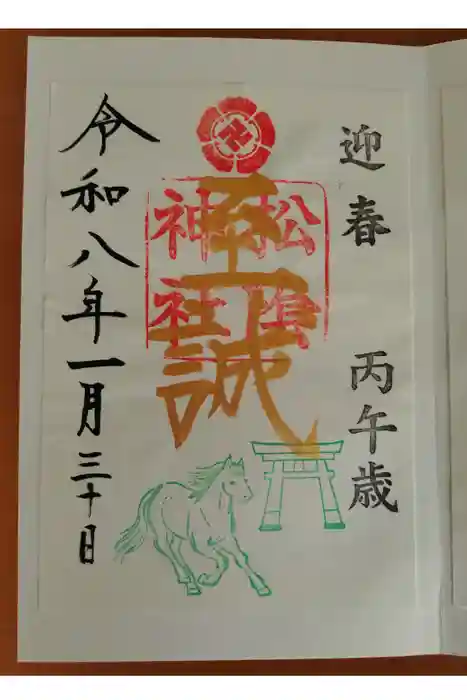 迎春　丙午歳
至誠
松陰
神社
令和八年一月三十日